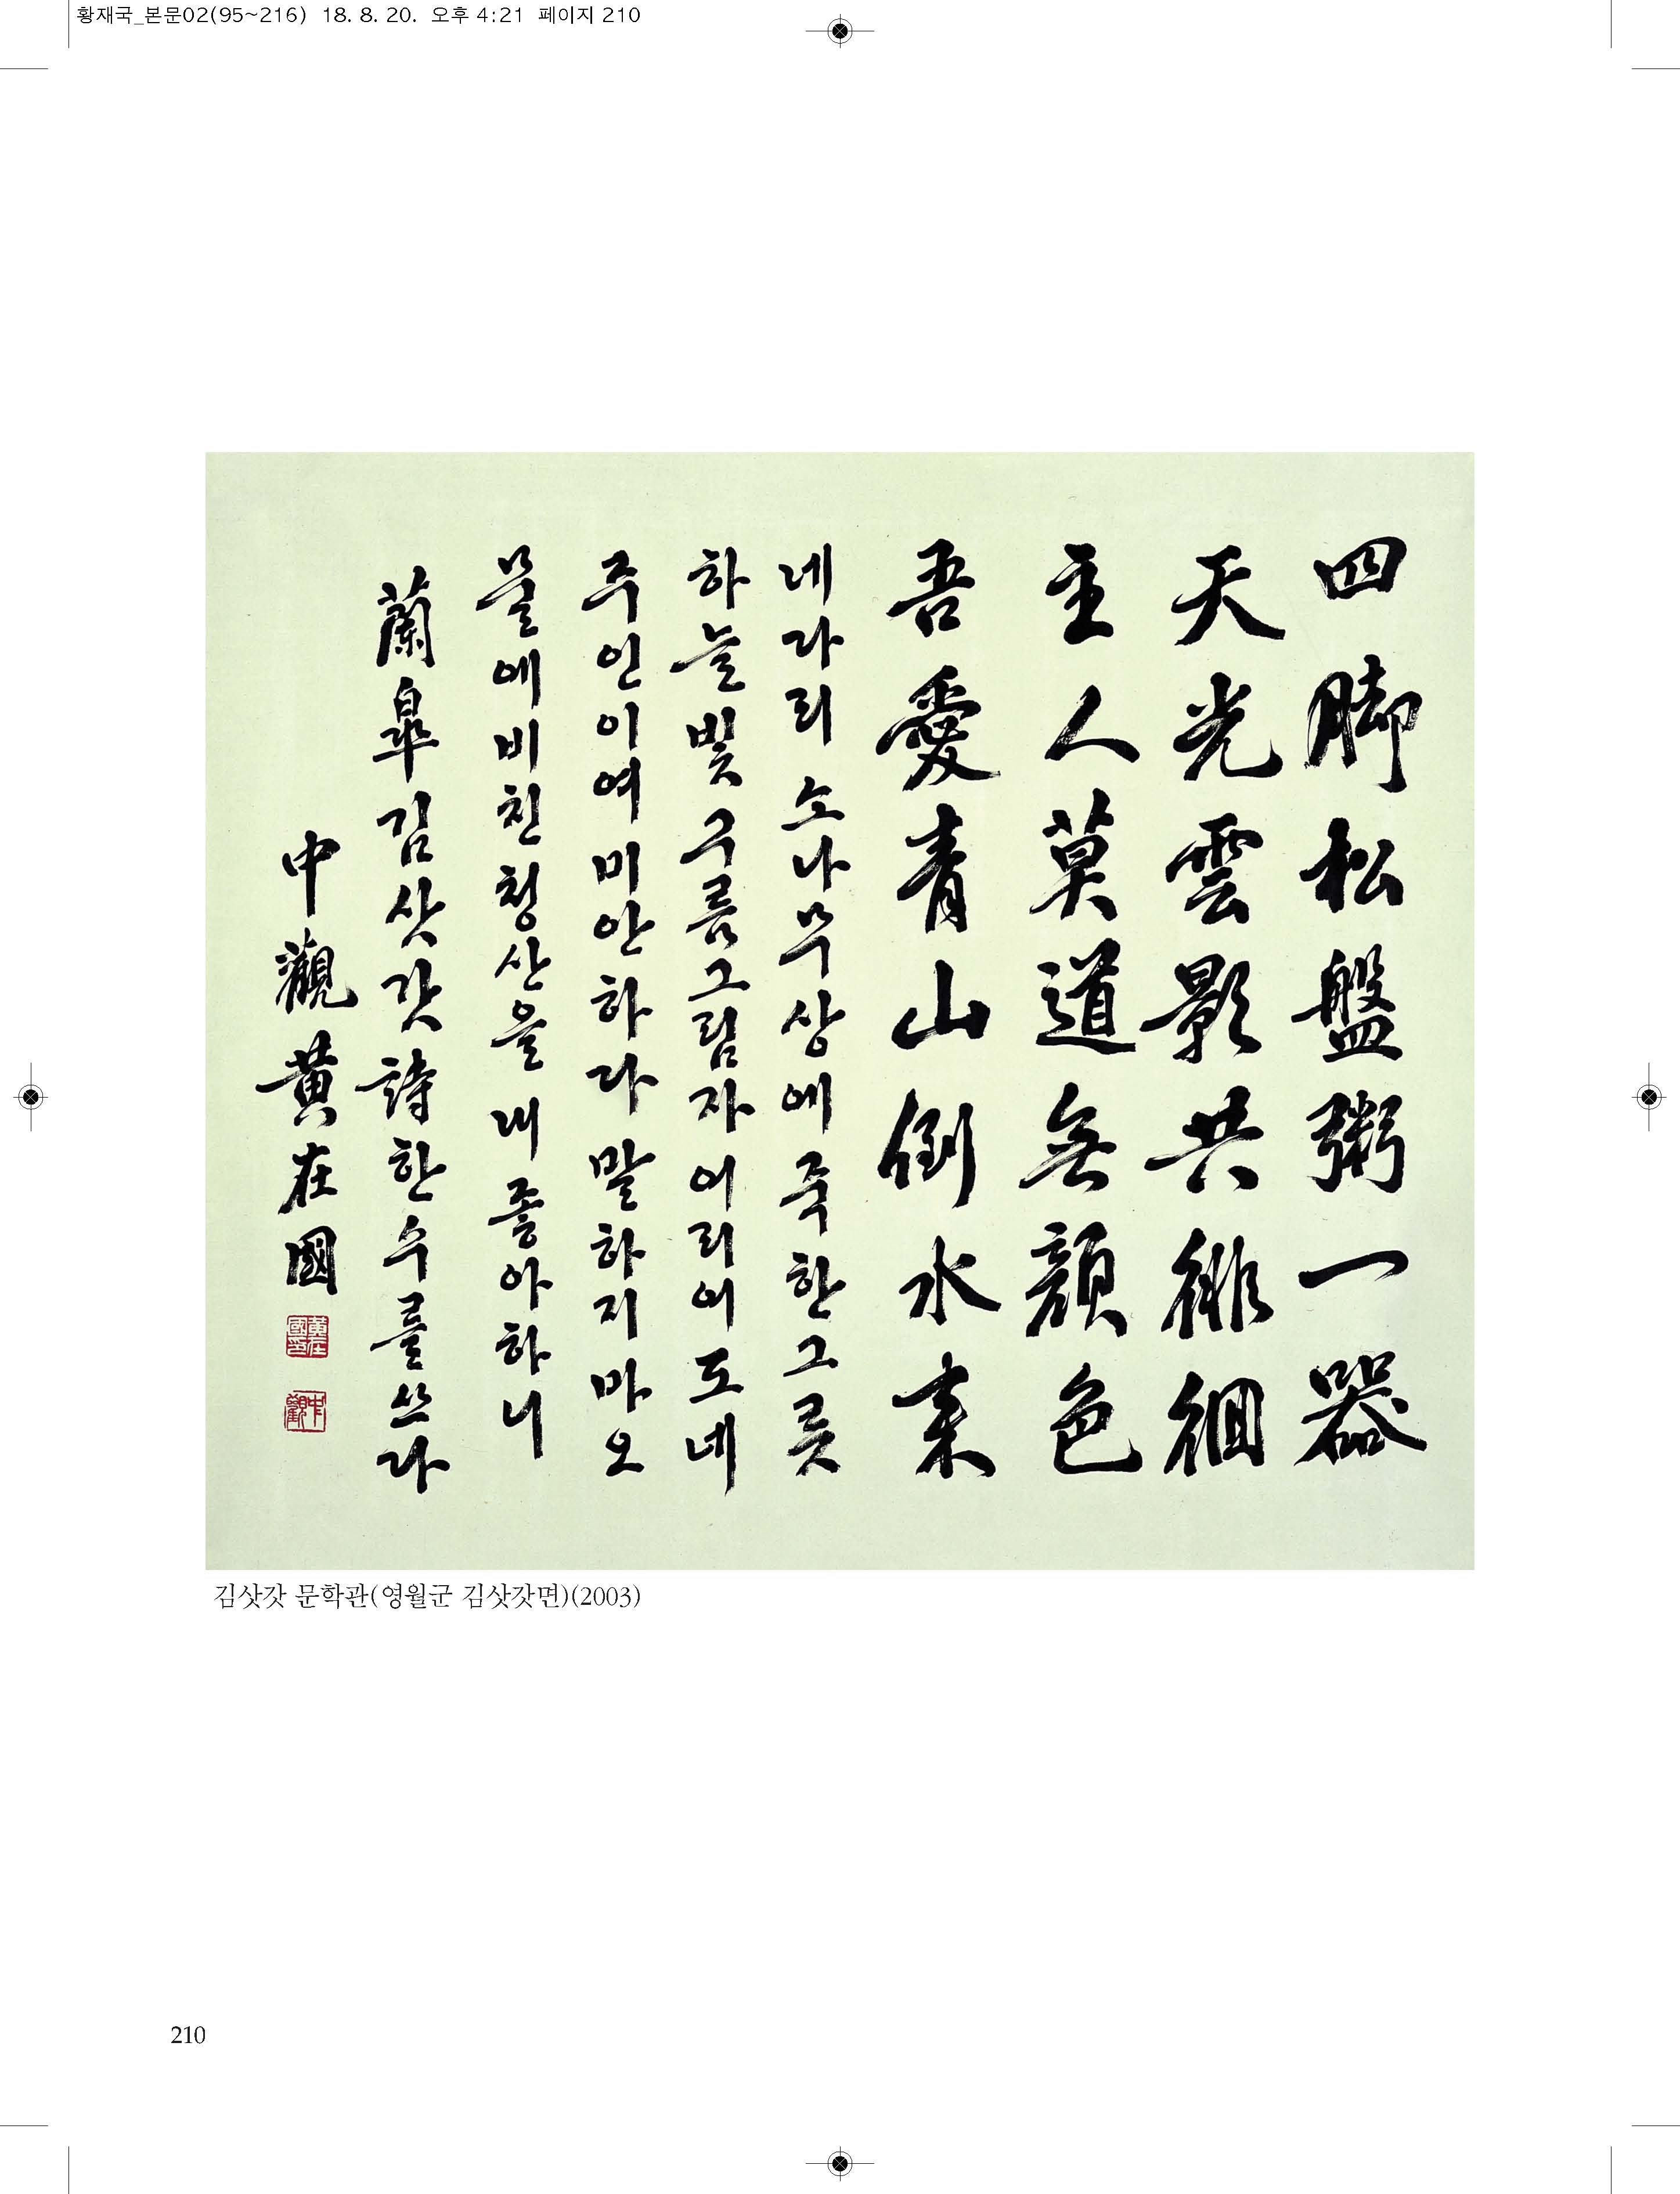 황재국_본문02(95~216) 18. 8. 20. 오후 4:21 페이지 210
四脚松盤粥一器
天光雲影共徘徊
主人莫道無顔色
吾愛青山倒水來
네 다리 소나무 상에 죽 한 그릇
하늘 빛 구름 그림자 어리어 도네
주인이여 미안하다 말하지 마오
물에 비친 청산을 내 좋아하니
蘭皐 김삿갓 詩 한 수를 쓰다
中觀 黃在國
黃在國印
中觀
김삿갓 문학관(영월군 김삿갓면)(2003)
210